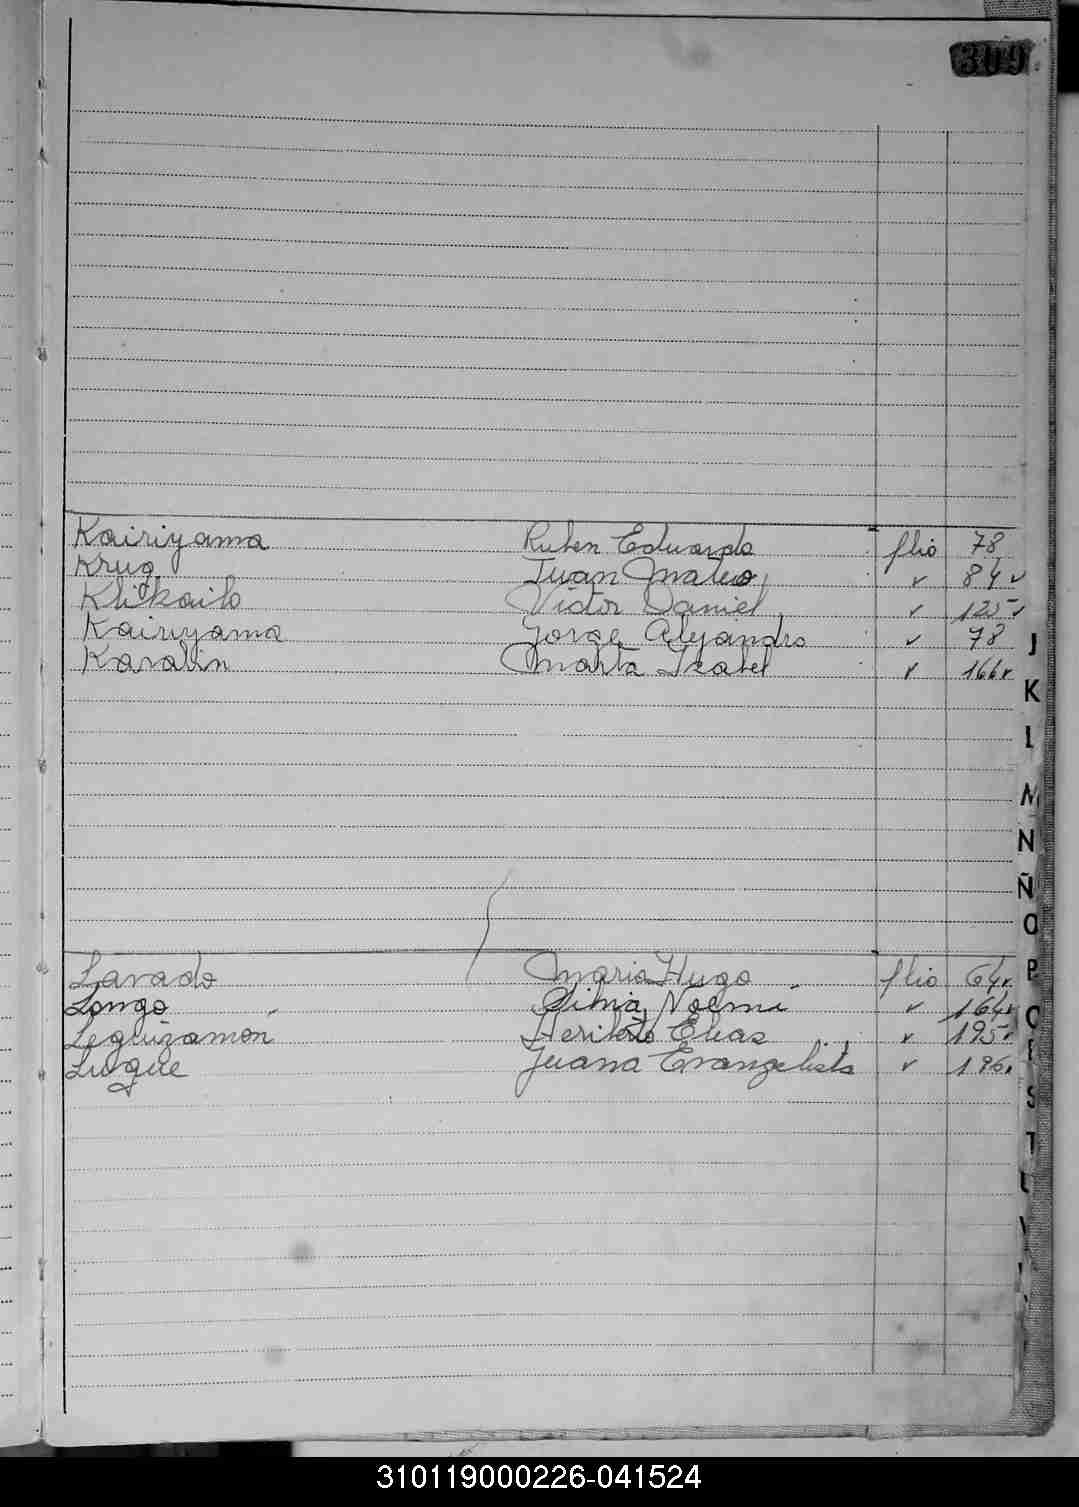 309
Kairiyama Ruben Eduardo flio 78
Krug Juan Mateo v 84v
Klikailo Victor Daniel v 125v
Kairiyama Jorge Alejandro v 78
Karalin Marta Isabel v 166v
Lavado Maria Hugo flio 64v
Longo Silvia Noemi v 164v
Leguizamón Heriberto Elias v 195v
Luque Juana Evangelista v 196v
J
K
L
M
N
Ñ
O
P
Q
R
S
T
U
V
310119000226-041524